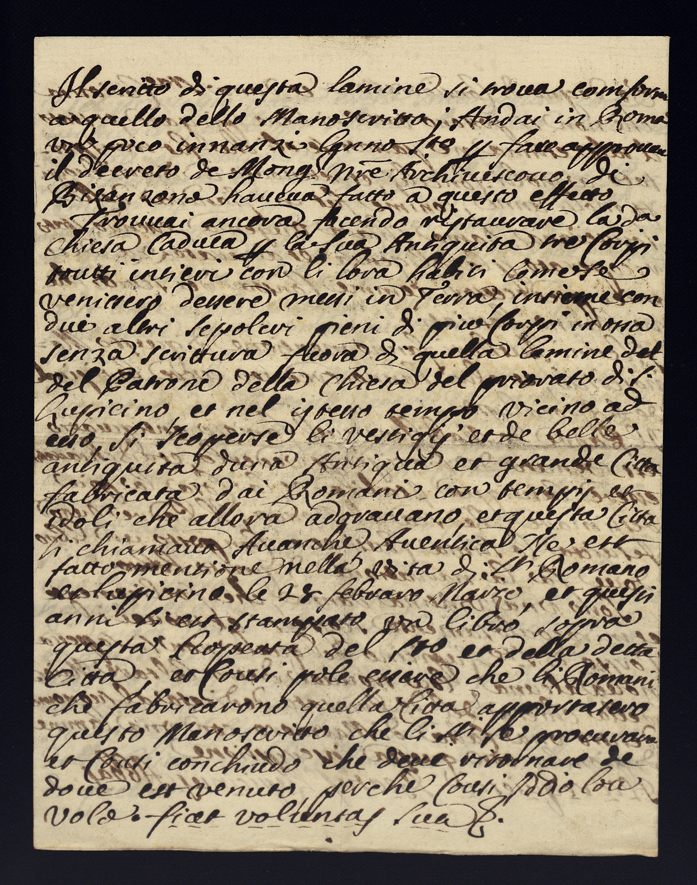 Il scritto di questa lamine si trova conform
a quello dello Manoscritto; Andai in Roma
poco innanzi fare approvar
il decreto de Mong. nre Archivescovo di
Bisanzone haveva fatto a questo effetto
Trovai ancora facendo ristaurare la da
chiesa Caduca la sua Antiquita tre Corpi
tutti intieri con li loro habiti Come se
venissero dessere messi in Terra, insieme con
due altri sepolcri pieni di piu Corpi in ossa
senza scrittura fuora di quella lamine del
del Patrone della chiesa del priorato di S.
Lupicino, et nel istesso tempo vicino ad
esso, si scoperse li vestigij et de belle
antiquita duna Antiqua et grande Citta
fabricata dai Romani con tempij et
idoli che allora adoravano, et questa Citta
si chiamava Avanche Aventica Ne est
fatto mentione nella vita di Sti. Romano
et Lupicino le 28 febraro Marzo, et questi
anni si est stampato un libro sopra
questa scoperta del Sto et della detta
Citta, et Cousi pole essere che li Romani
che fabricarono quella Citta apportasero
questo Manoscritto che li SSi se procurarono
et Cousi conchiudo che deve ritornare de
dove est venuto perche Cousi Iddio loa
vole. fiat voluntas sua